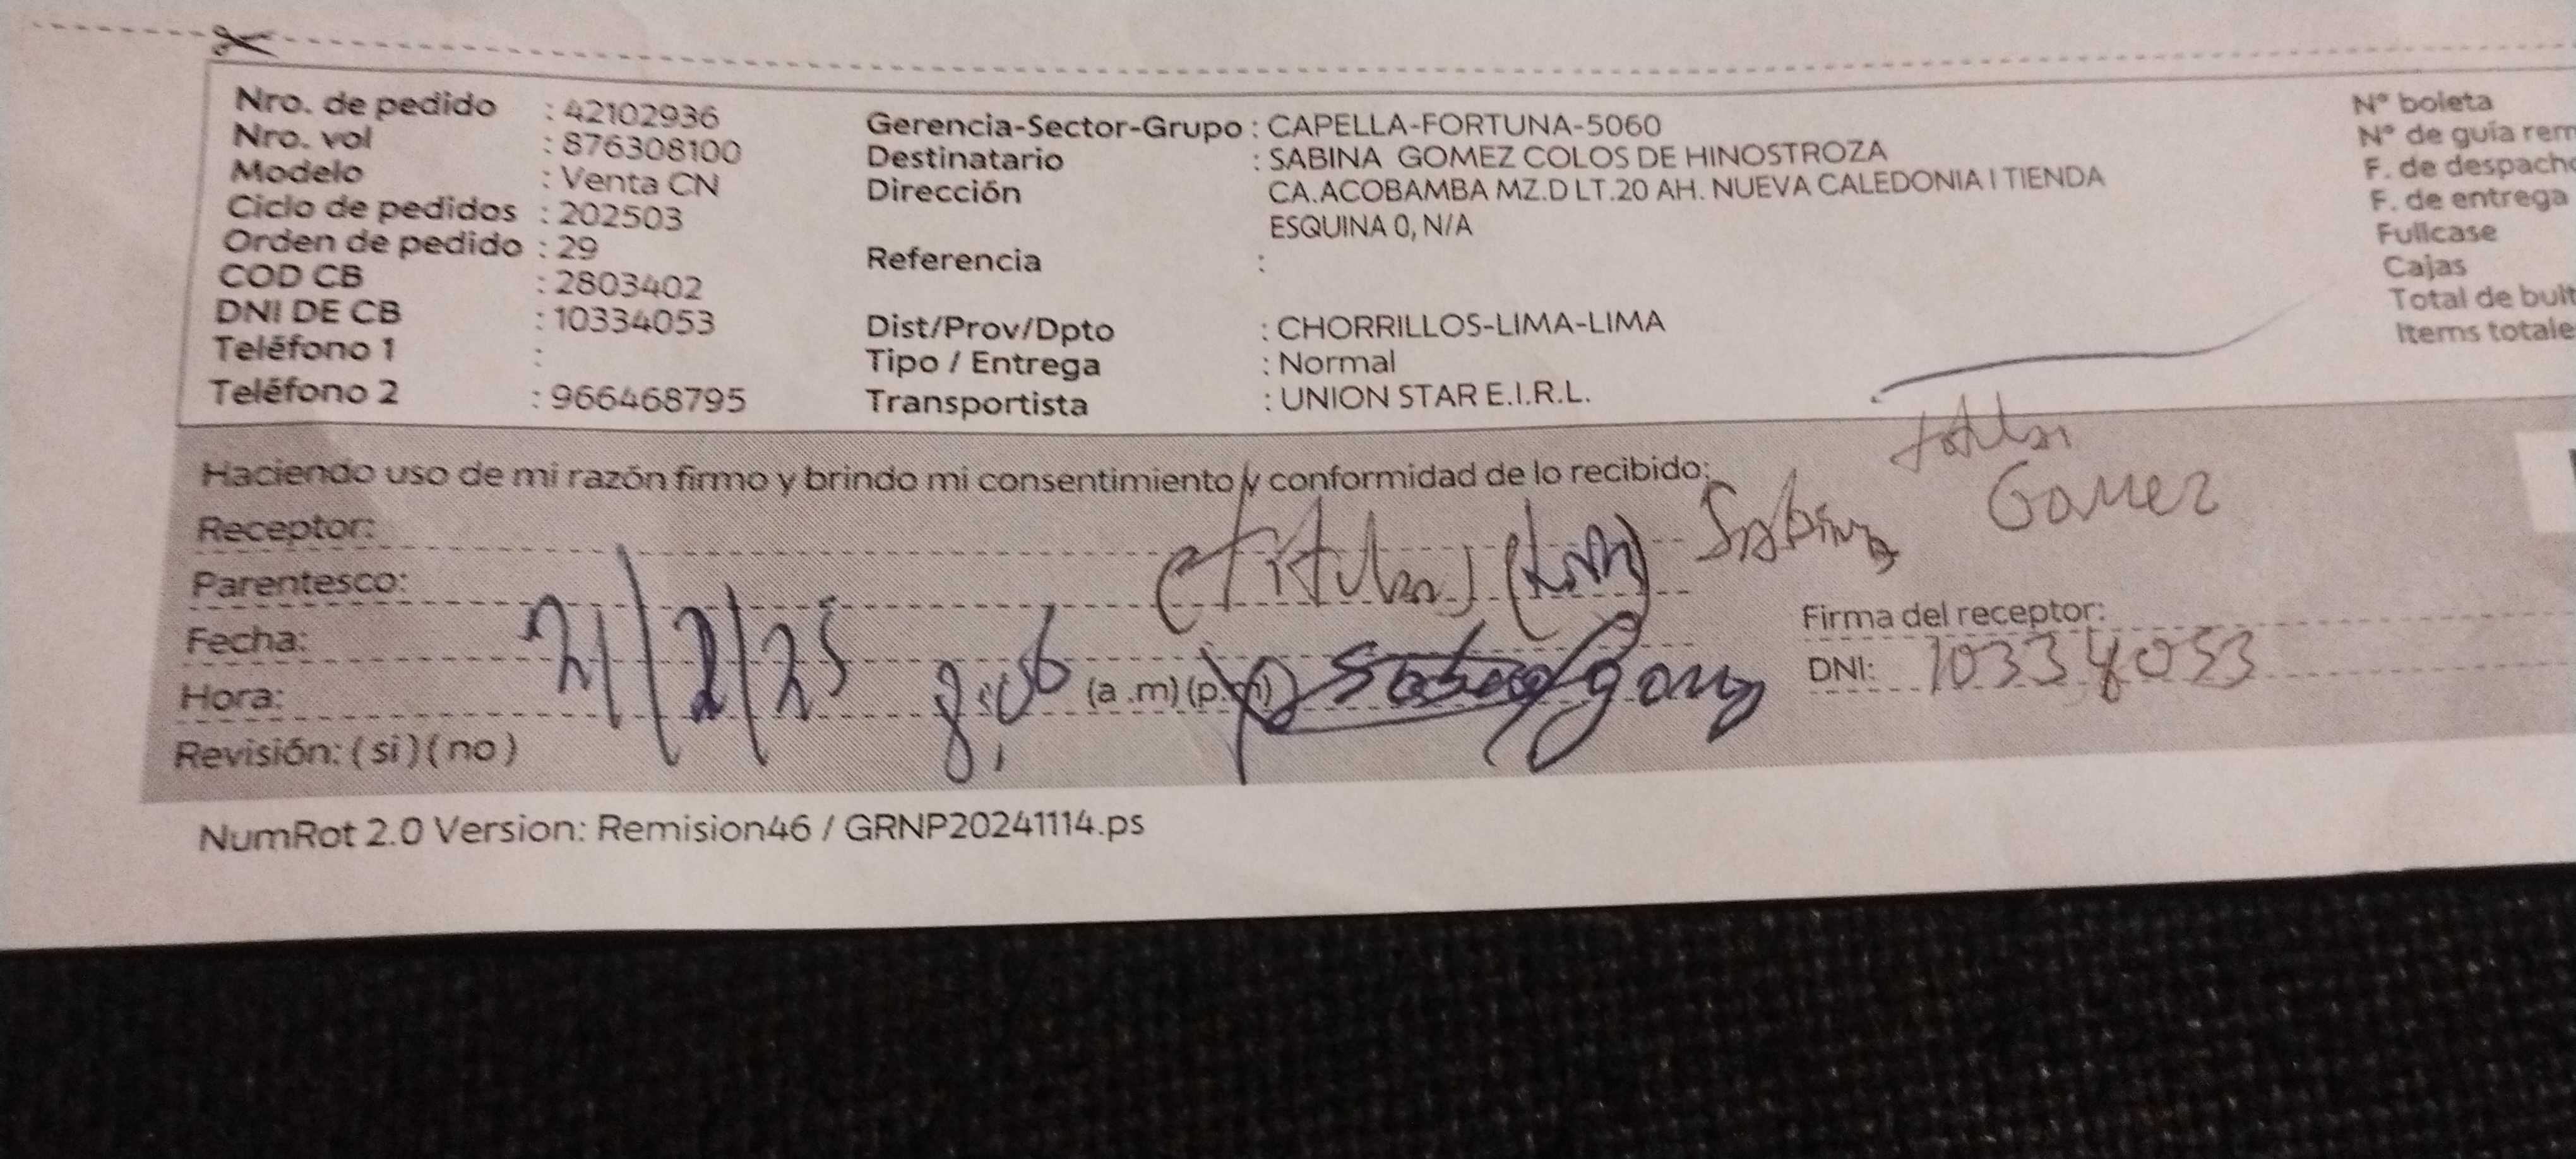 Nro. de pedido : 42102936
Nro. vol : 876308100
Modelo : Venta CN
Ciclo de pedidos : 202503
Orden de pedido : 29
COD CB : 2803402
DNI DE CB : 10334053
Teléfono 1 :
Teléfono 2 : 966468795
Gerencia-Sector-Grupo : CAPELLA-FORTUNA-5060
Destinatario : SABINA GOMEZ COLOS DE HINOSTROZA
Dirección CA.ACOBAMBA MZ.D LT.20 AH. NUEVA CALEDONIA I TIENDA
ESQUINA 0, N/A
Referencia :
Dist/Prov/Dpto : CHORRILLOS-LIMA-LIMA
Tipo / Entrega : Normal
Transportista : UNION STAR E.I.R.L.
N° boleta
N° de guía rem
F. de despacho
F. de entrega
Fullcase
Cajas
Total de bult
Items totale
Haciendo uso de mi razón firmo y brindo mi consentimiento y conformidad de lo recibido:
Receptor:
(Titular) Sabina Gomez
Parentesco:
Fecha: 21/2/25
Hora: 8:06 (a .m) (p.m)
Revisión: ( si ) ( no )
Firma del receptor:
DNI: 10334053
NumRot 2.0 Version: Remision46 / GRNP20241114.ps